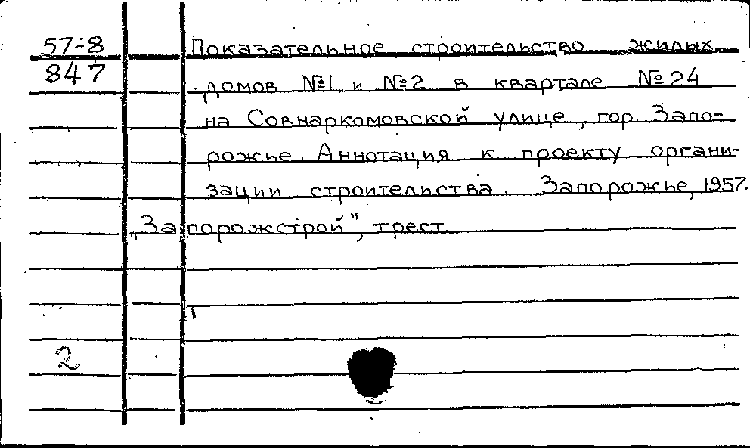 57-8
847
Показательное строительство жилых
домов №1 и №2 в квартале №24
на Совнаркомовской улице, гор. Запо-
рожье. Аннотация к проекту органи-
зации строительства. Запорожье, 1957.
„Запорожстрой", трест
2